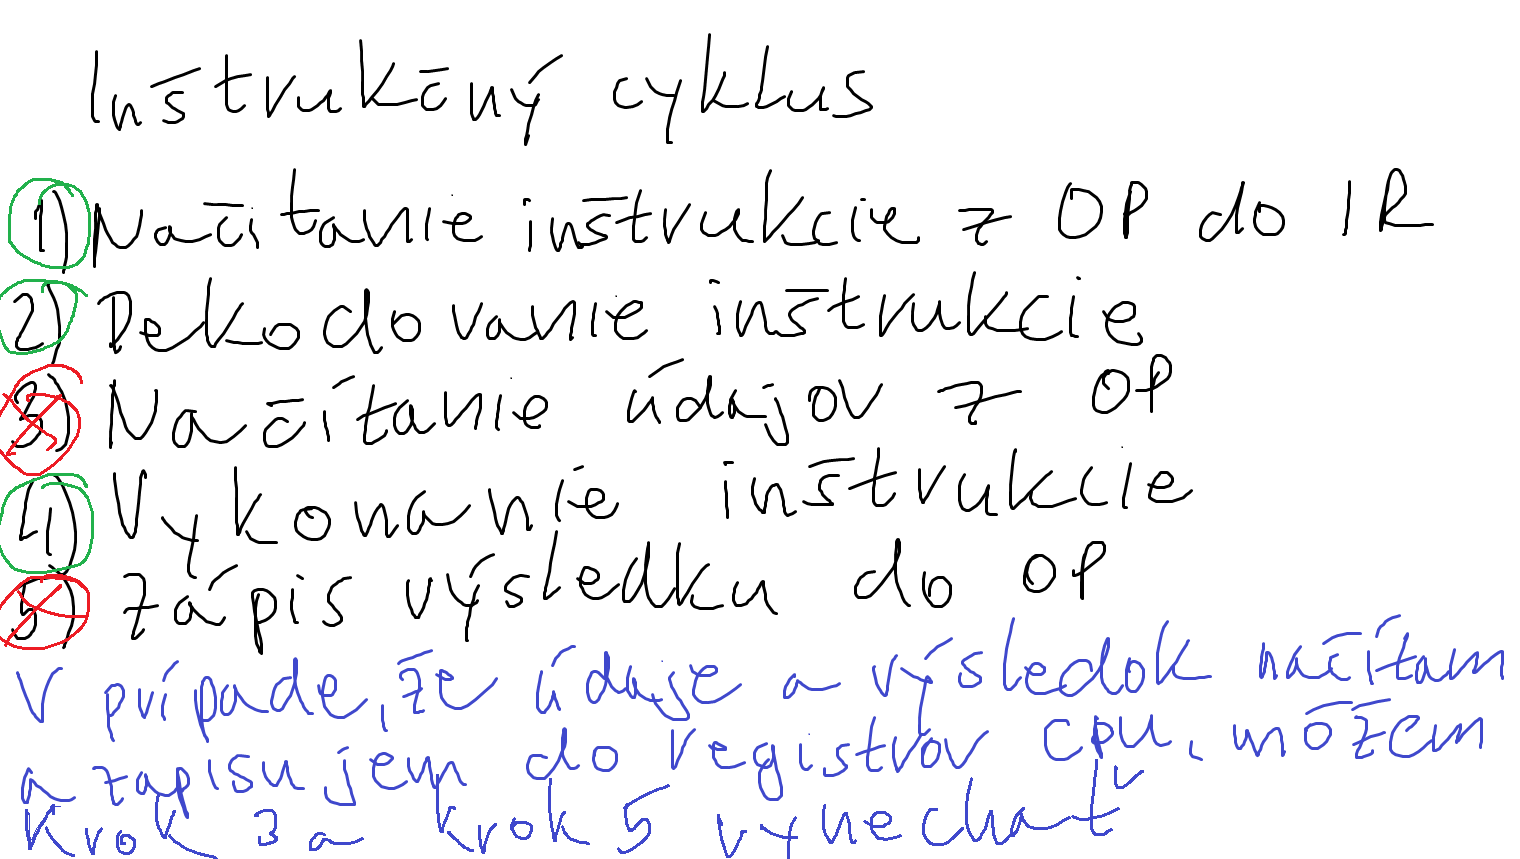 Inštrukčný cyklus
1) Načítanie inštrukcie z OP do IR
2) Dekodovanie inštrukcie
3) Načítanie údajov z OP
4) Vykonanie inštrukcie
5) Zápis výsledku do OP
V prípade, že údaje a výsledok načítam
a zapisujem do registrov CPU, môžem
krok 3 a krok 5 vynechať